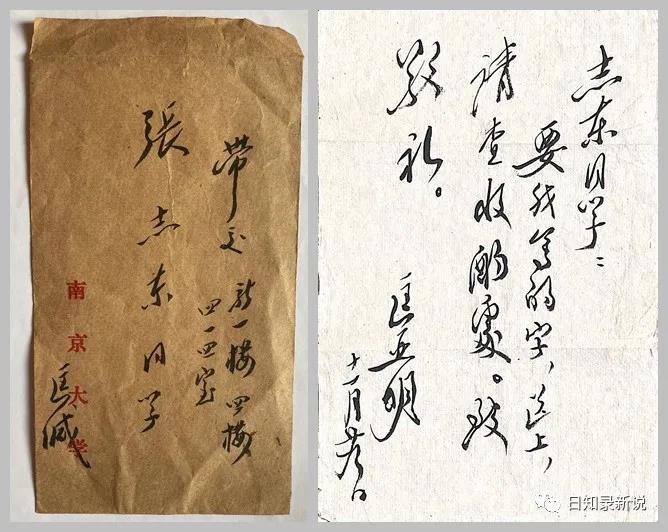 帶交 新一楼四楼
四一四室
張志东同学
南京大学
匡缄
志东同学：
要我写的字，送上，
请查收酌处。致
敬礼。
匡亚明
十一月 日
日知录新说